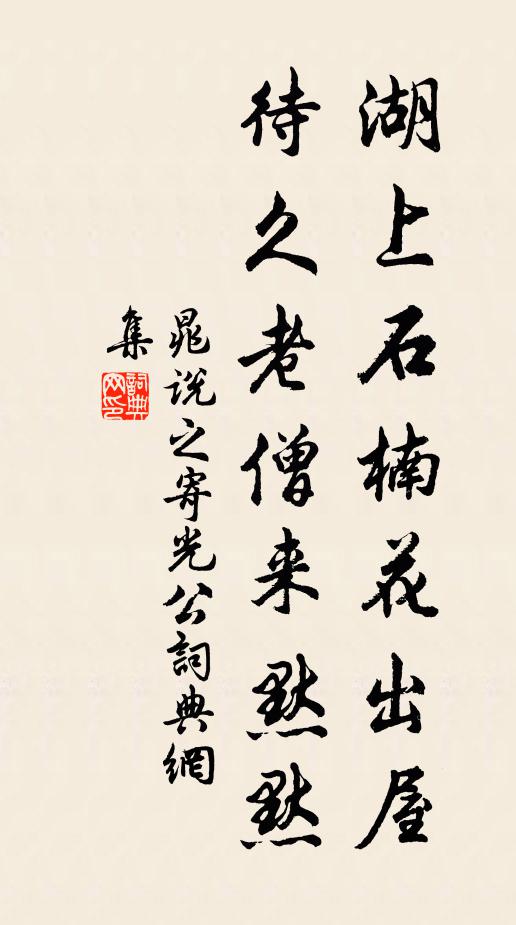 湖上石楠花出屋
待久老僧来默默
晁说之寄光公詞典網
集
詞典网印